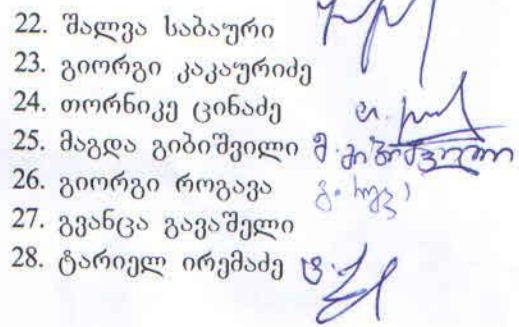 22. შალვა საბაური
23. გიორგი კაკაურიძე
24. თორნიკე ცინაძე
25. მაგდა გიბიშვილი მ. გიბიშვილი
26. გიორგი როგავა
27. გვანცა გავაშელი
28. ტარიელ ირემაძე